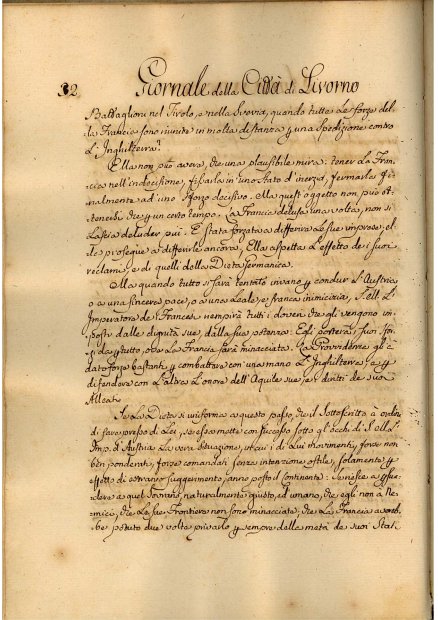 32 Giornale della Città di Livorno
Battaglioni nel Tirolo, e nella Svevia, quando tutte le forze del-
la Francia sono riunite in molta distanza p una Spedizione contro
L'Inghilterra?
Ella non può avere, che una plausibile mira: tener la Fran-
cia nell'indecisione, fissarla in uno stato d'inerzia, fermarla fi-
nalmente ad uno sforzo decisivo. Ma quest'oggetto non può ot-
tenersi che p un certo tempo. La Francia delusa una volta, non si
Lascia deluder più. È stata forzata a differire le sue imprese, el-
la prosegue a differirle ancora, Ella aspetta L'effetto de i suoi
reclami, e di quelli della Dieta Germanica.
Ma quando tutto si sarà tentato invano p condur L'Austria
o a una sincera pace, o a una Leale, e franca inimicizia, S. M. L'
Imperatore de' Francesi riempirà tutti i doveri che gli vengono im-
posti dalla dignità sua, e dalla sua potenza: Egli porterà i suoi sfor-
zi da p tutto, ove La Francia sarà minacciata. La Provvidenza gli à
dato forze bastanti p combattere con una mano L'Inghilterra, e p
difendere con L'altra L'onore dell'Aquile sue, e i diritti de suoi
Alleati.
Se La Dieta si uniforma a questo passo, che il Sottoscritto à ordine
di fare presso di Lei, se essa mette con successo sotto gl'occhi di S. M. L'
Imp. d'Austria La vera situazione, in cui i di Lui movimenti, forse non
ben ponderati, forse comandati senza intenzione ostile, solamente p
effetto di estraneo suggerimento, anno posto il Continente: Se riesce a persua-
dere a quel Sovrano, naturalmente giusto, ed umano, che egli non à Ne-
mici, che Le sue Frontiere non sono minacciate; che La Francia avreb-
be potuto due volte privarlo p sempre della metà de' suoi Stati,